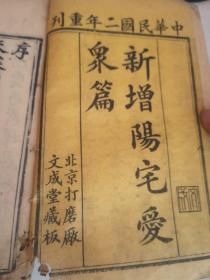 中華民國二年重刊
新增陽宅愛
衆篇
北京打磨廠
文成堂藏板
序